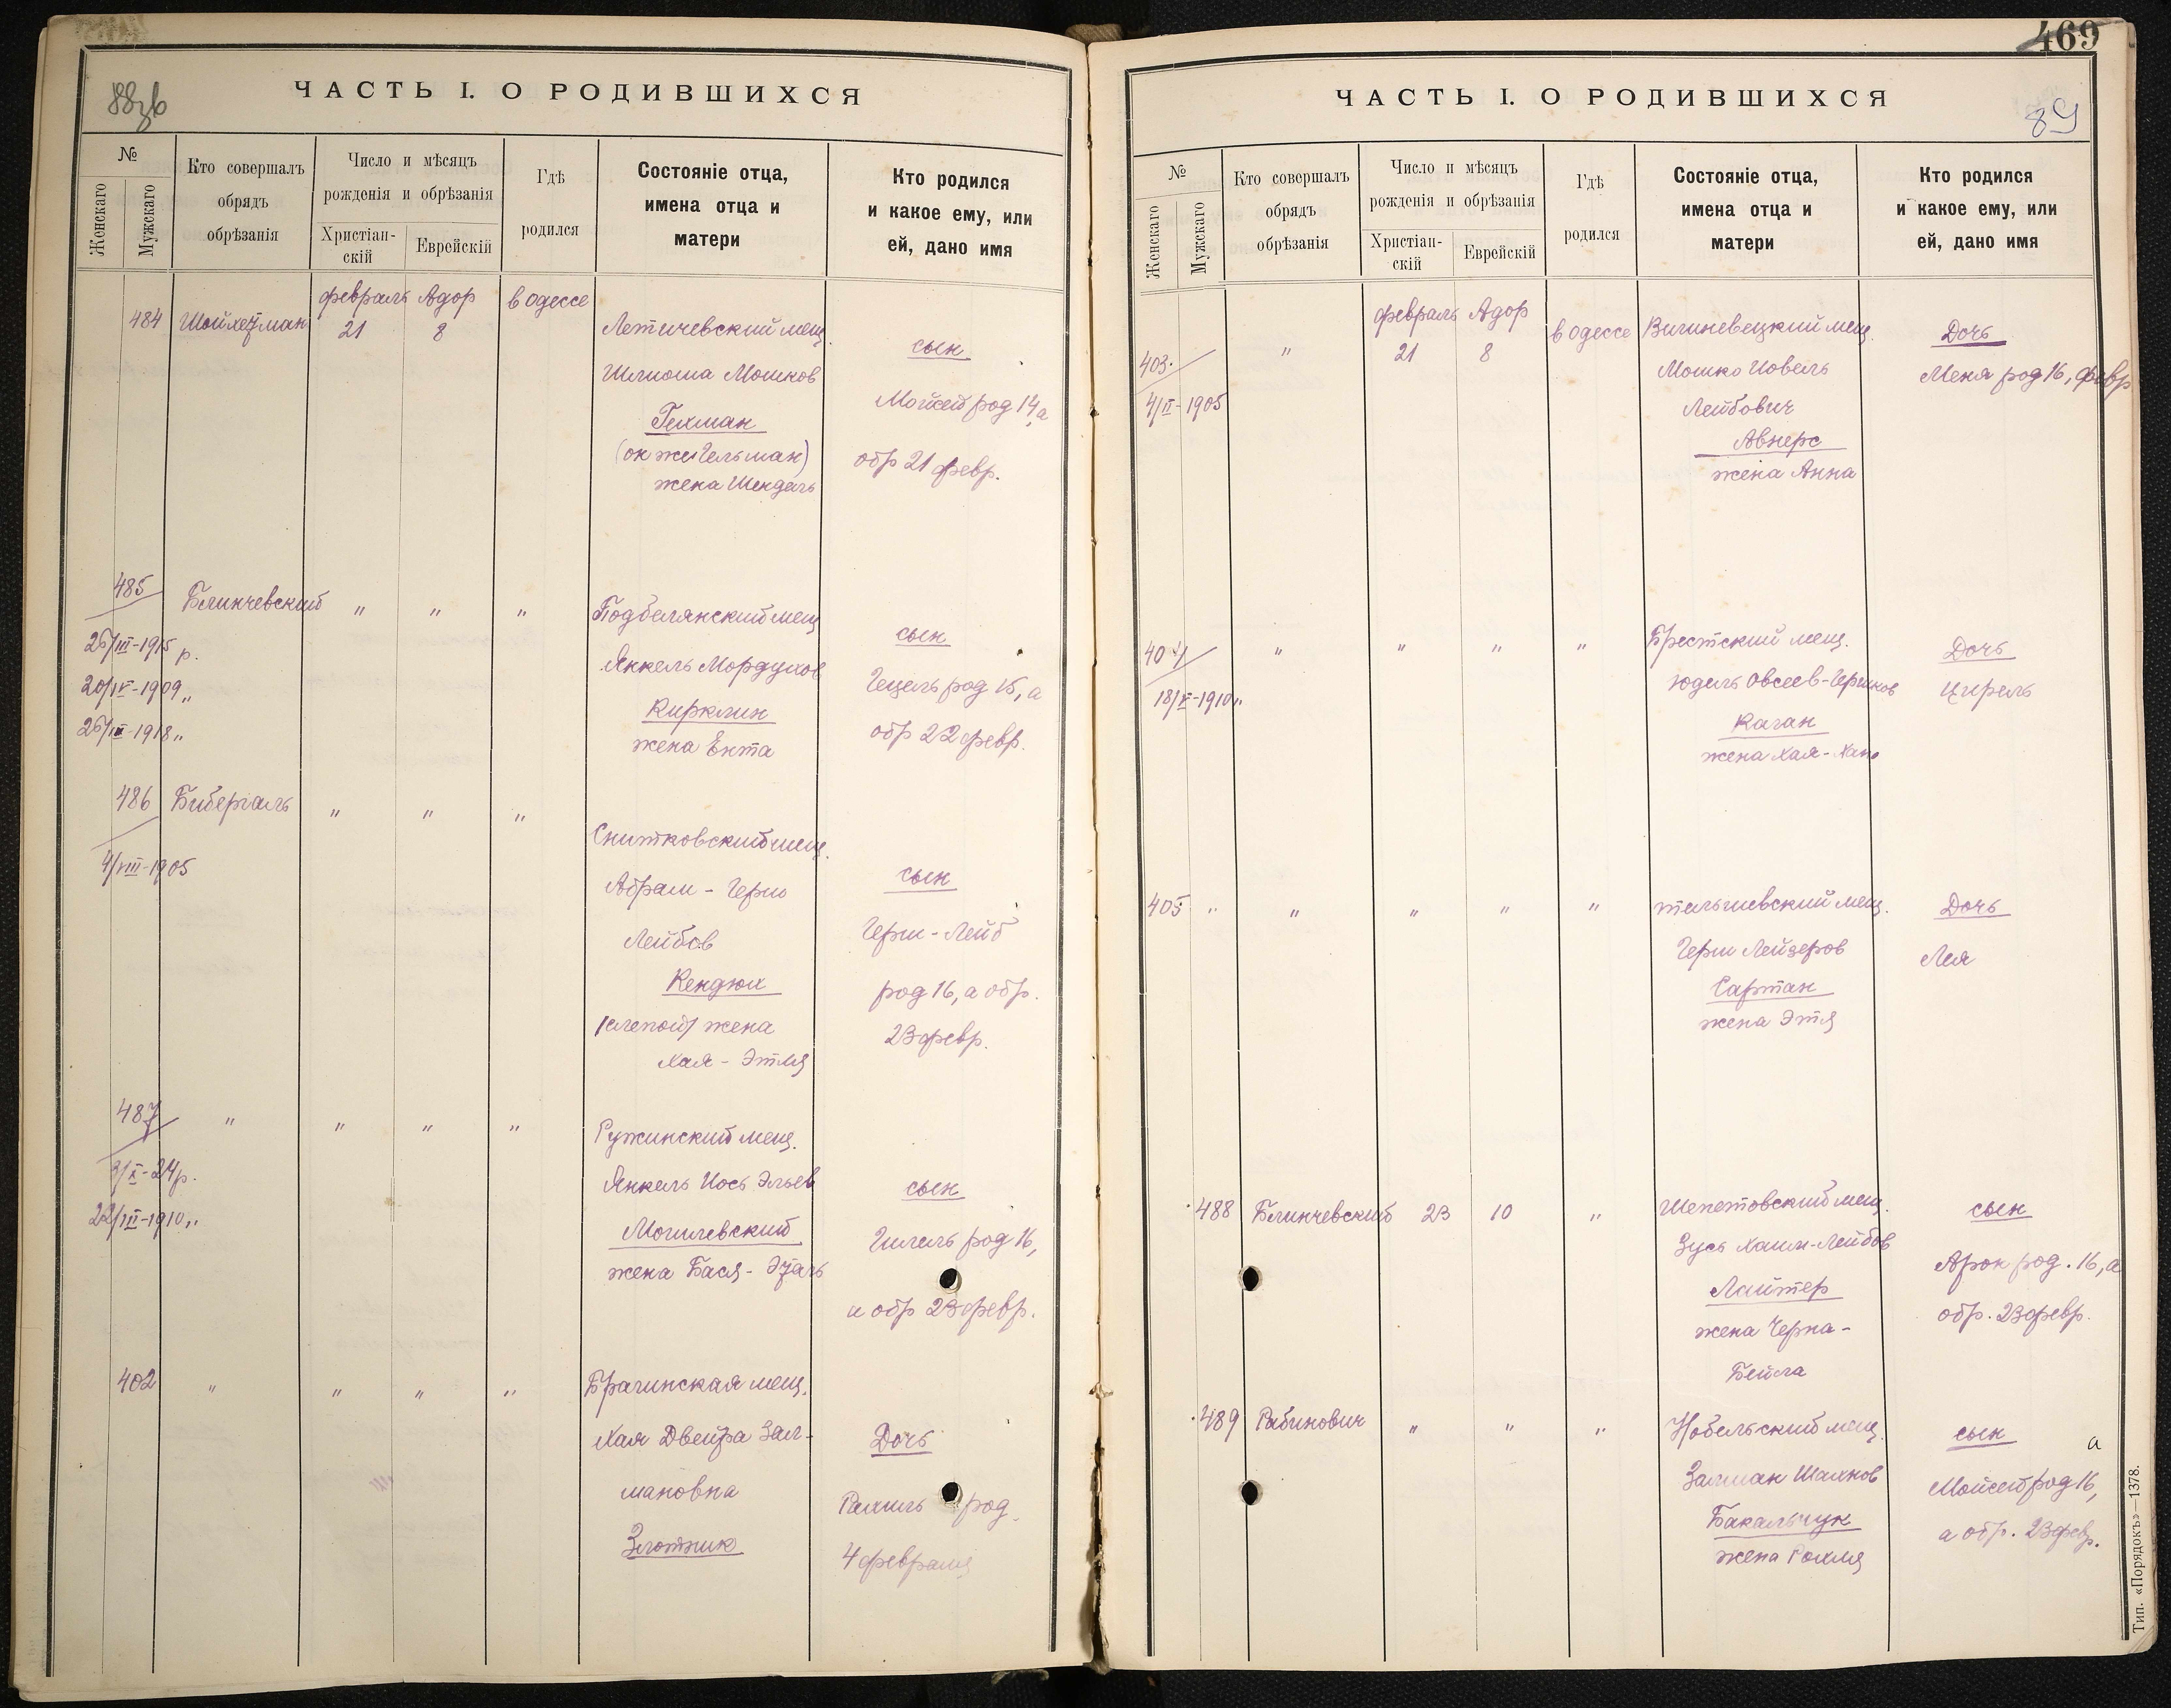 88зв
ЧАСТЬ I. О РОДИВШИХСЯ
№
Женскаго
Мужскаго
Кто совершалъ
обрядъ
обрѣзанія
Число и мѣсяцъ
рожденія и обрѣзанія
Христіан-
скій
Еврейскій
Гдѣ
родился
Состояніе отца,
имена отца и
матери
Кто родился
и какое ему, или
ей, дано имя
484 Шойхетман февраль Адор в Одессе
21 8
Летичевский мещ.
Шлиома Мошков
Гехман
(он же Гельман)
жена Шендель
сын
Моисей род 14, а
обр 21 февр.
485 Блинчевский " " "
26/III-1915 р.
20/IV-1909 "
26/III-1918 "
Подбелянский мещ
Янкель Мордухов
Кирклин
жена Ента
сын
Гецель род 15, а
обр 22 февр.
486 Бибергаль " " "
4/VIII-1905
Снитковский мещ.
Абрам - Герш
Лейбов
Кендюх
/слепой/ жена
Хая - Этля
сын
Герш - Лейб
род 16, а обр.
23 февр.
487 " " " "
3/X-24 р.
22/III-1910 "
Ружинский мещ.
Янкель Иось Эльев
Могилевский
жена Бася -
сын
Гилель род 16,
а обр 23 февр.
402 " " " "
Брагинская мещ.
Хая Двейра Зал-
мановна
Злотник
Дочь
Рахиль род
4 февраля
469
89
ЧАСТЬ I. О РОДИВШИХСЯ
№
Женскаго
Мужскаго
Кто совершалъ
обрядъ
обрѣзанія
Число и мѣсяцъ
рожденія и обрѣзанія
Христіан-
скій
Еврейскій
Гдѣ
родился
Состояніе отца,
имена отца и
матери
Кто родился
и какое ему, или
ей, дано имя
403. " февраль Адор в Одессе
21 8
4/II-1905
Вишневецкий мещ.
Мошко Иовель
Лейбович
Авнерс
жена Анна
Дочь
Меня род 16, февр
404 " " " "
18/V-1910 "
Брестский мещ.
Юдель Овсеев-Гершков
Каган
жена Хая - Хана
Дочь
Цирель
405 " " " " "
Тальневский мещ.
Герш Лейзеров
Сартан
жена Этя
Дочь
Лея
488 Блинчевский 23 10 "
Шепетовский мещ.
Зусь Хаим-Лейбов
Лайтер
жена Черна -
Бейла
сын
Арон род. 16, а
обр. 23 февр.
489 Рабинович " " "
Нобельский мещ.
Залман Шахнов
Бакальчук
жена Рохля
сын а
Моисей род 16,
а обр. 23 февр.
Тип. «Порядокъ»—1378.